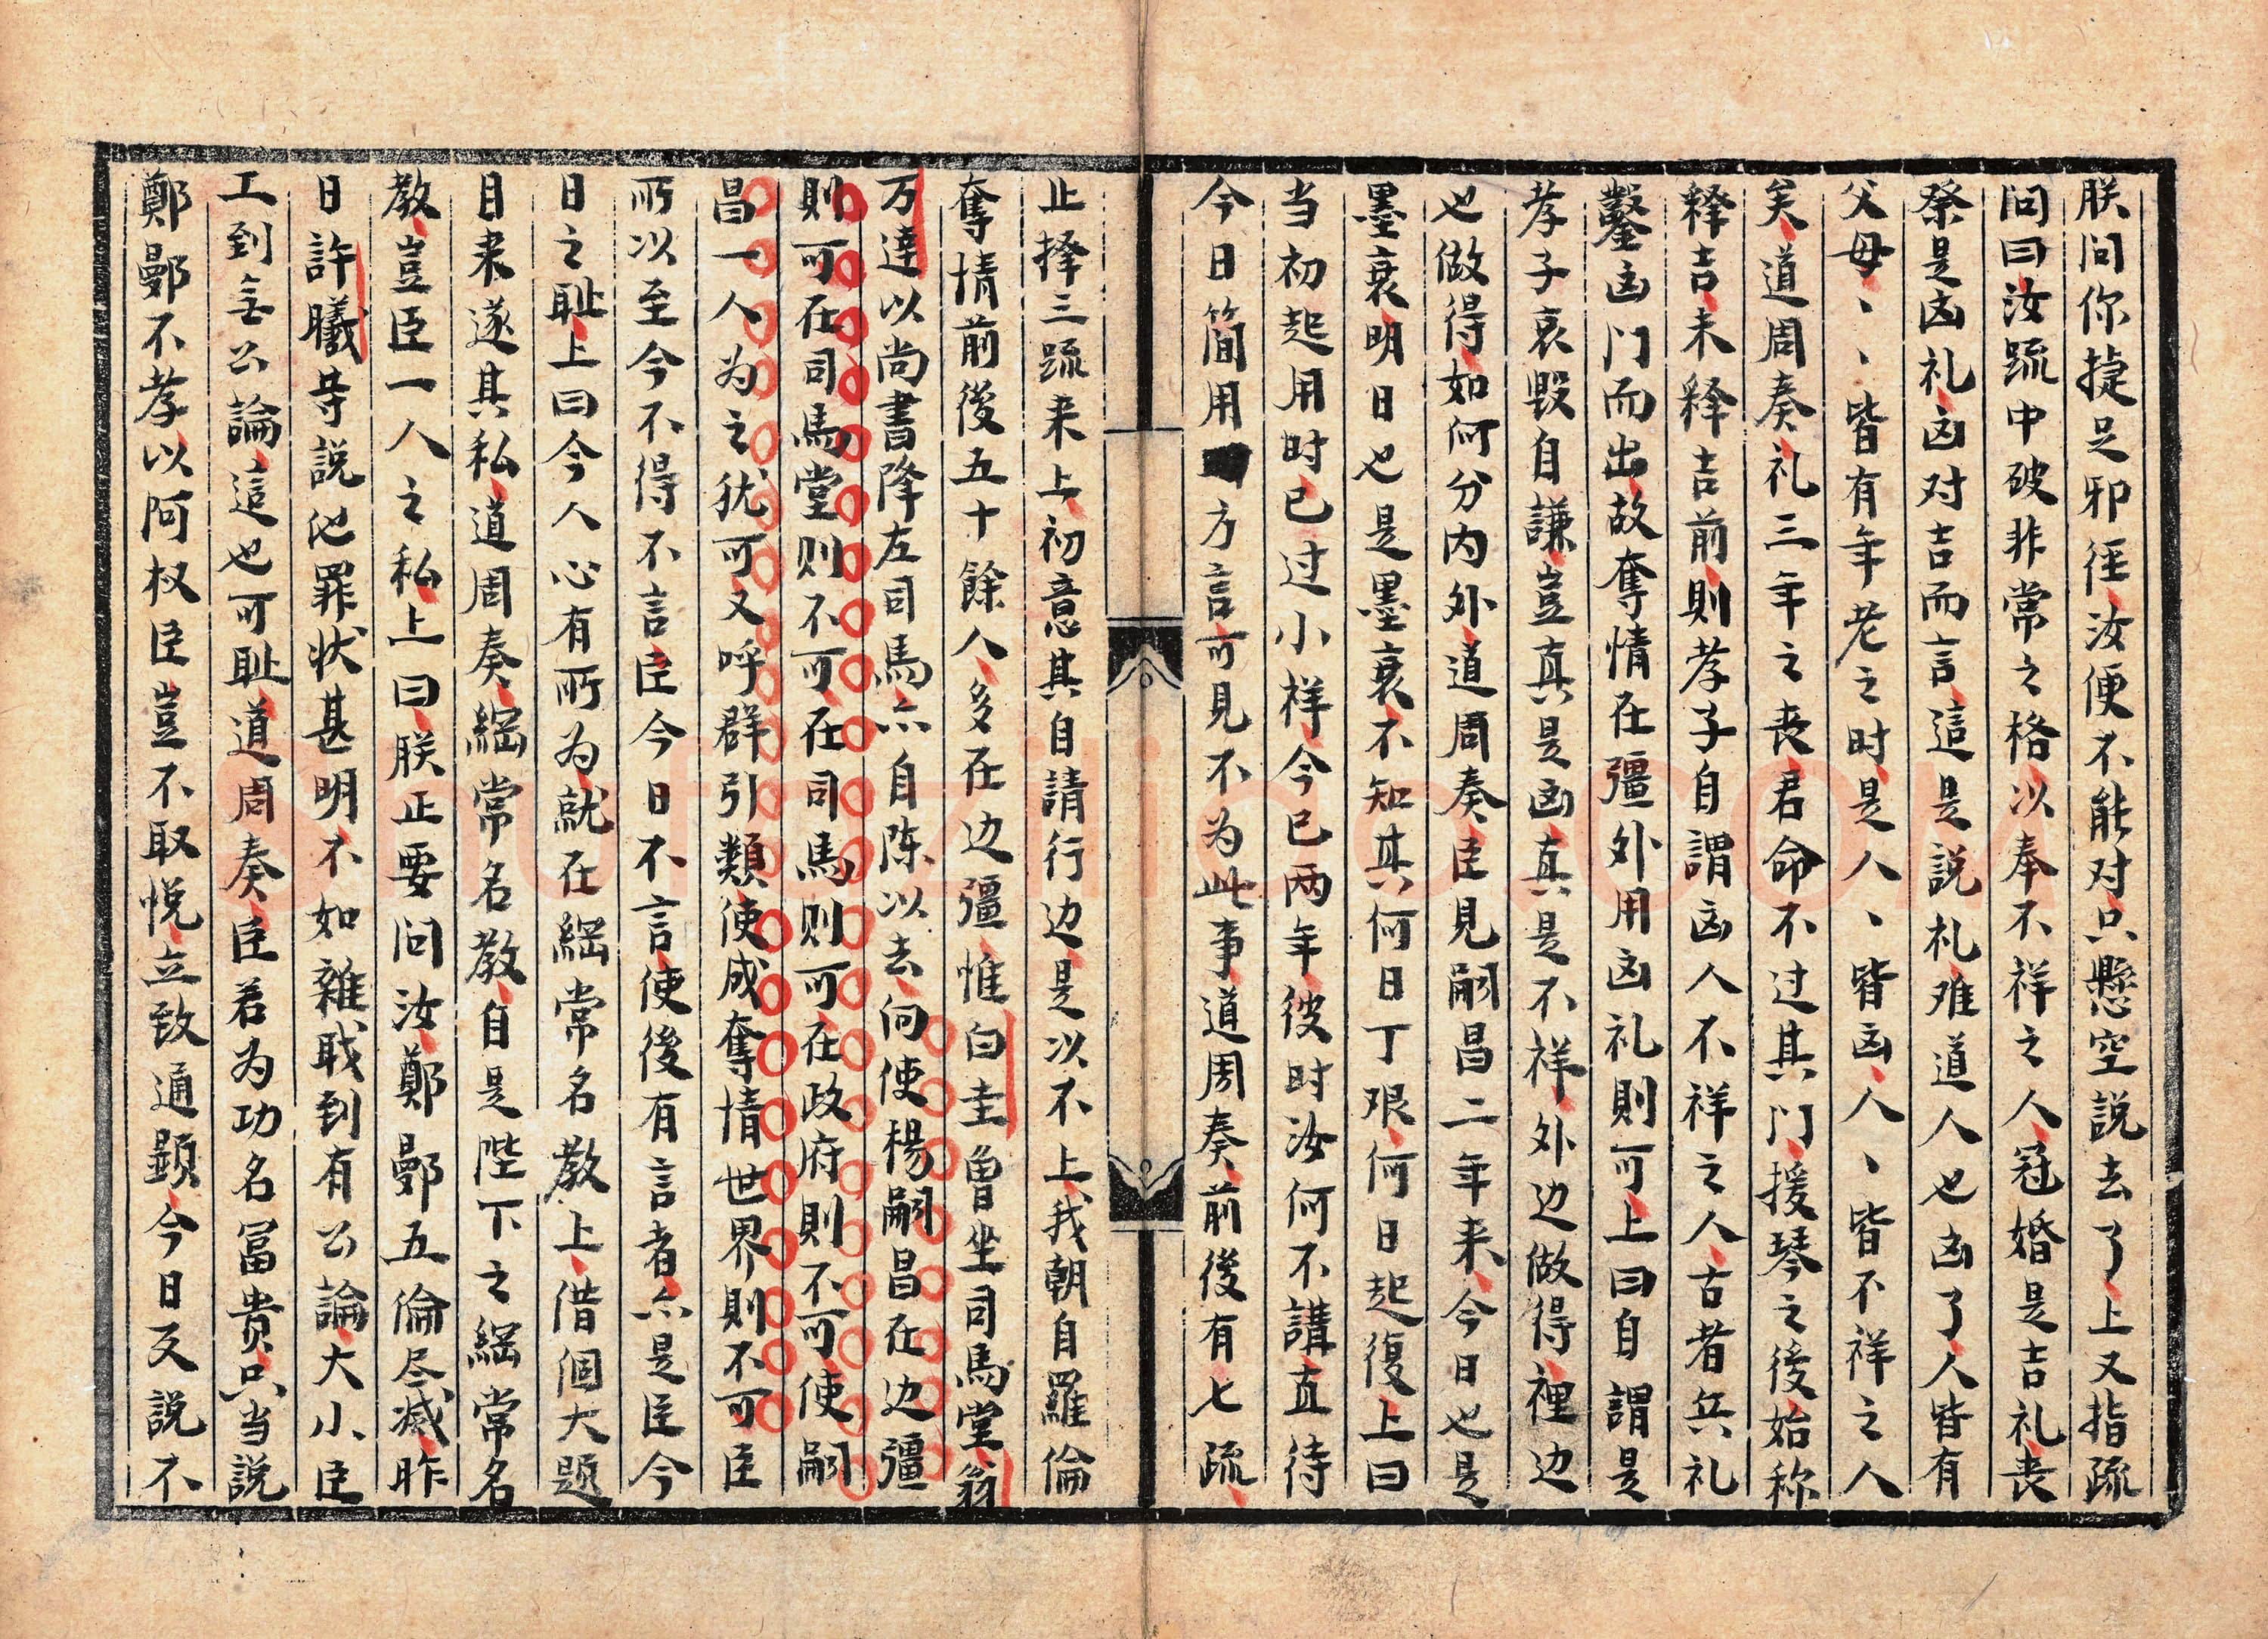 朕问你㨗足邪徑汝便不能对只懸空説去了上又指疏
问曰汝疏中破非常之格以奉不祥之人冠婚是吉礼丧
祭是凶礼凶对吉而言這是説礼难道人也凶了人皆有
父母、、皆有年老之时是人、皆凶人、皆不祥之人
矣道周奏礼三年之丧君命不过其门援琴之後始称
释吉未释吉前則孝子自謂凶人不祥之人古者兵礼
鑿凶门而出故奪情在疆外用凶礼則可上曰自謂是
孝子哀毁自謙豈真是凶真是不祥外边做得裡边
也做得如何分内外道周奏臣見嗣昌二年来今日也是
墨衰明日也是墨衰不知其何日丁艰何日起復上曰
当初起用时已过小祥今已两年彼时汝何不講直待
今日簡用方言可見不为此事道周奏前後有七疏
止擇三疏来上初意其自請行边是以不上我朝自羅倫
奪情前後五十餘人多在边疆惟白圭曾坐司馬堂翁
万達以尚書降左司馬亦自陈以去向使楊嗣昌在边疆
則可在司馬堂则不可在司馬则可在政府則不可使嗣
昌一人为之犹可又呼群引類使成奪情世界則不可臣
所以至今不得不言臣今日不言使後有言者亦是臣今
日之耻上曰今人心有所为就在綱常名教上借個大題
目来遂其私道周奏綱常名教自是陛下之綱常名
教豈臣一人之私上曰朕正要问汝鄭鄤五倫尽滅昨
日許曦等説他罪状甚明不如雜職到有公論大小臣
工到無公論這也可耻道周奏臣若为功名冨贵只当説
鄭鄤不孝以阿权臣豈不取悦立致通顕今日反説不